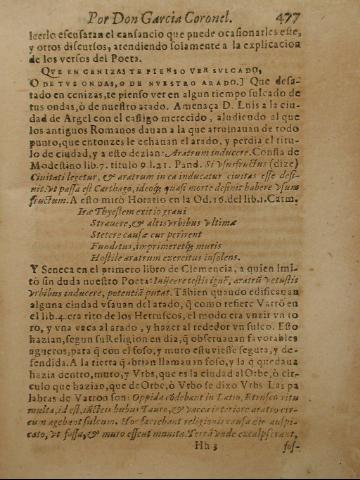 Por Don Garcia Coronel. 477
leerlo escusaran el cansancio que puede ocasionarles este,
y otros discursos, atendiendo solamente a la explicacion
de los versos del Poeta.
QUE EN CENIZAS TE PIENSO VER SULCADO,
O DE TVS ONDAS, O DE NVESTRO ARADO.] Que desa-
tado en cenizas, te pienso ver en algun tiempo sulcado de
tus ondas, ò de nuestro arado. Amenaça D. Luis a la ciu-
dad de Argel con el castigo merecido, aludiendo al que
los antiguos Romanos dauan a la que arruinauan de todo
punto, que entonzes le echauan el arado, y perdia el titu-
lo de ciudad, y a esto dezian: Aratrum inducere. Consta de
Modestino lib. 7. titulo 9 l. 21. Pand. Si vsusfructus (dize)
Ciuitati legetur, & aratrum in ea inducatur ciuitas esse desi-
nit, vt passa est Carthago, ideoq; quasi morte desinit habere vsum
fructum. A esto mirò Horatio en la Od. 16. del lib. 1. Carm.
Iræ Thyestem exitio graui
Strauere, & altis vrbibus vltimæ
Stetere causæ cur perirent
Funditus, imprimeretq; muris
Hostile aratrum exercitus insolens.
Y Seneca en el primero libro de Clemencia, a quien imi-
tò sin duda nuestro Poeta: aratrũ vetustis
vrbibus inducere, potentiã putat. Tãbien quando edificauan
alguna ciudad vsauan del arado, q̃ como refiere Varrõ en
el lib. 4. era rito de los Hetruscos, el modo era vnzir vn to
ro, y vna vaca al arado, y hazer al rededor vn sulco. Esto
hazian, segun su Religion en dia, q̃ obseruauan fauorables
agueros, para q̃ con el foso, y muro estuuiesse segura, y de-
fendida. A la tierra q̃ abrian llamauan foso, y la q̃ quedaua
hazia dentro, muro, y Vrbs, que es la ciudad al Orbe, ò cir-
culo que hazian, que de Orbe, ò Vrbo se dixo Vrbs Las pa
labras de Varron son: Oppida cõdebant in Latio, Etrusco ritu
multa, id est, iũctis bobus Tauro, & vacca interiore aratro cir-
cum agebant sulcum. Hoc faciebant religionis causa die auspi-
cato, vt fossa, & muro essent munita. Terrã vnde exculpserant,
Hh 3 fos-